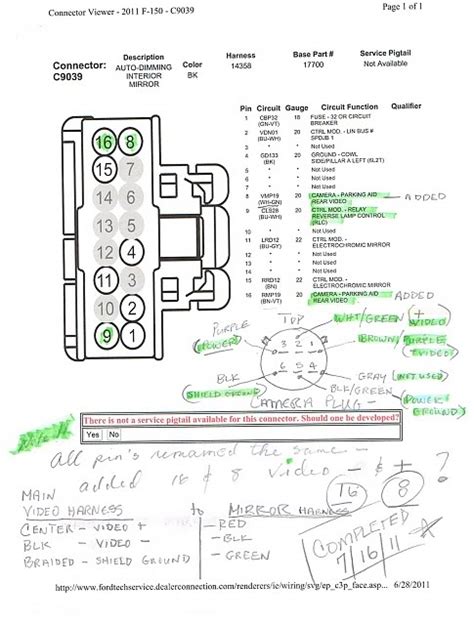 Connector Viewer - 2011 F-150 - C9039
Page 1 of 1
Connector: C9039
Description
AUTO-DIMMING INTERIOR MIRROR
Color
BK
Harness
14358
Base Part #
17700
Service Pigtail
Not Available
Pin Circuit Gauge Circuit Function Qualifier
1 CBP32 (GN-VT) 18 FUSE - 32 OR CIRCUIT BREAKER
2 VDN01 (BU-WH) 20 CTRL MOD. - LIN BUS # SPDJB 1
3 * * Not Used
4 GD133 (BK) 20 GROUND - COWL SIDE/PILLAR A LEFT (6L2T)
5 * * Not Used
6 * * Not Used
7 * * Not Used
8 VMP19 (WH-GN) 20 CAMERA - PARKING AID REAR VIDEO - ADDED
9 CLS28 (BU-WH) 20 CTRL MOD. - RELAY REVERSE LAMP CONTROL (RLC)
10 * * Not Used
11 LRD12 (BU-GY) 22 CTRL MOD. - ELECTROCHROMIC MIRROR
12 * * Not Used
13 * * Not Used
14 * * Not Used
15 RRD12 (BN) 22 CTRL MOD. - ELECTROCHROMIC MIRROR
16 RMP19 (BN-VT) 20 CAMERA - PARKING AID REAR VIDEO ADDED
16 8
15 7
14 6
13 5
12 4
11 3
10 2
9 1
PURPLE (POWER)
TOP
WHT/GREEN (+ VIDEO)
BROWN/PURPLE (- VIDEO)
3 2 1
5 4
6
GRAY (NOT USED)
BLK (SHIELD GROUND)
BLK/GREEN (POWER GROUND)
CAMERA PLUG
There is not a service pigtail available for this connector. Should one be developed?
Yes No
All pin's remained the same -
added 16 & 8 video - & + ?
16 8
MAIN
VIDEO HARNESS to MIRROR HARNESS
CENTER - VIDEO + - RED
BLK - VIDEO - - BLK
BRAIDED - SHIELD GROUND - GREEN
COMPLETED
7/16/11
http://www.fordtechservice.dealerconnection.com/renderers/ie/wiring/svg/ep_c3p_face.asp... 6/28/2011